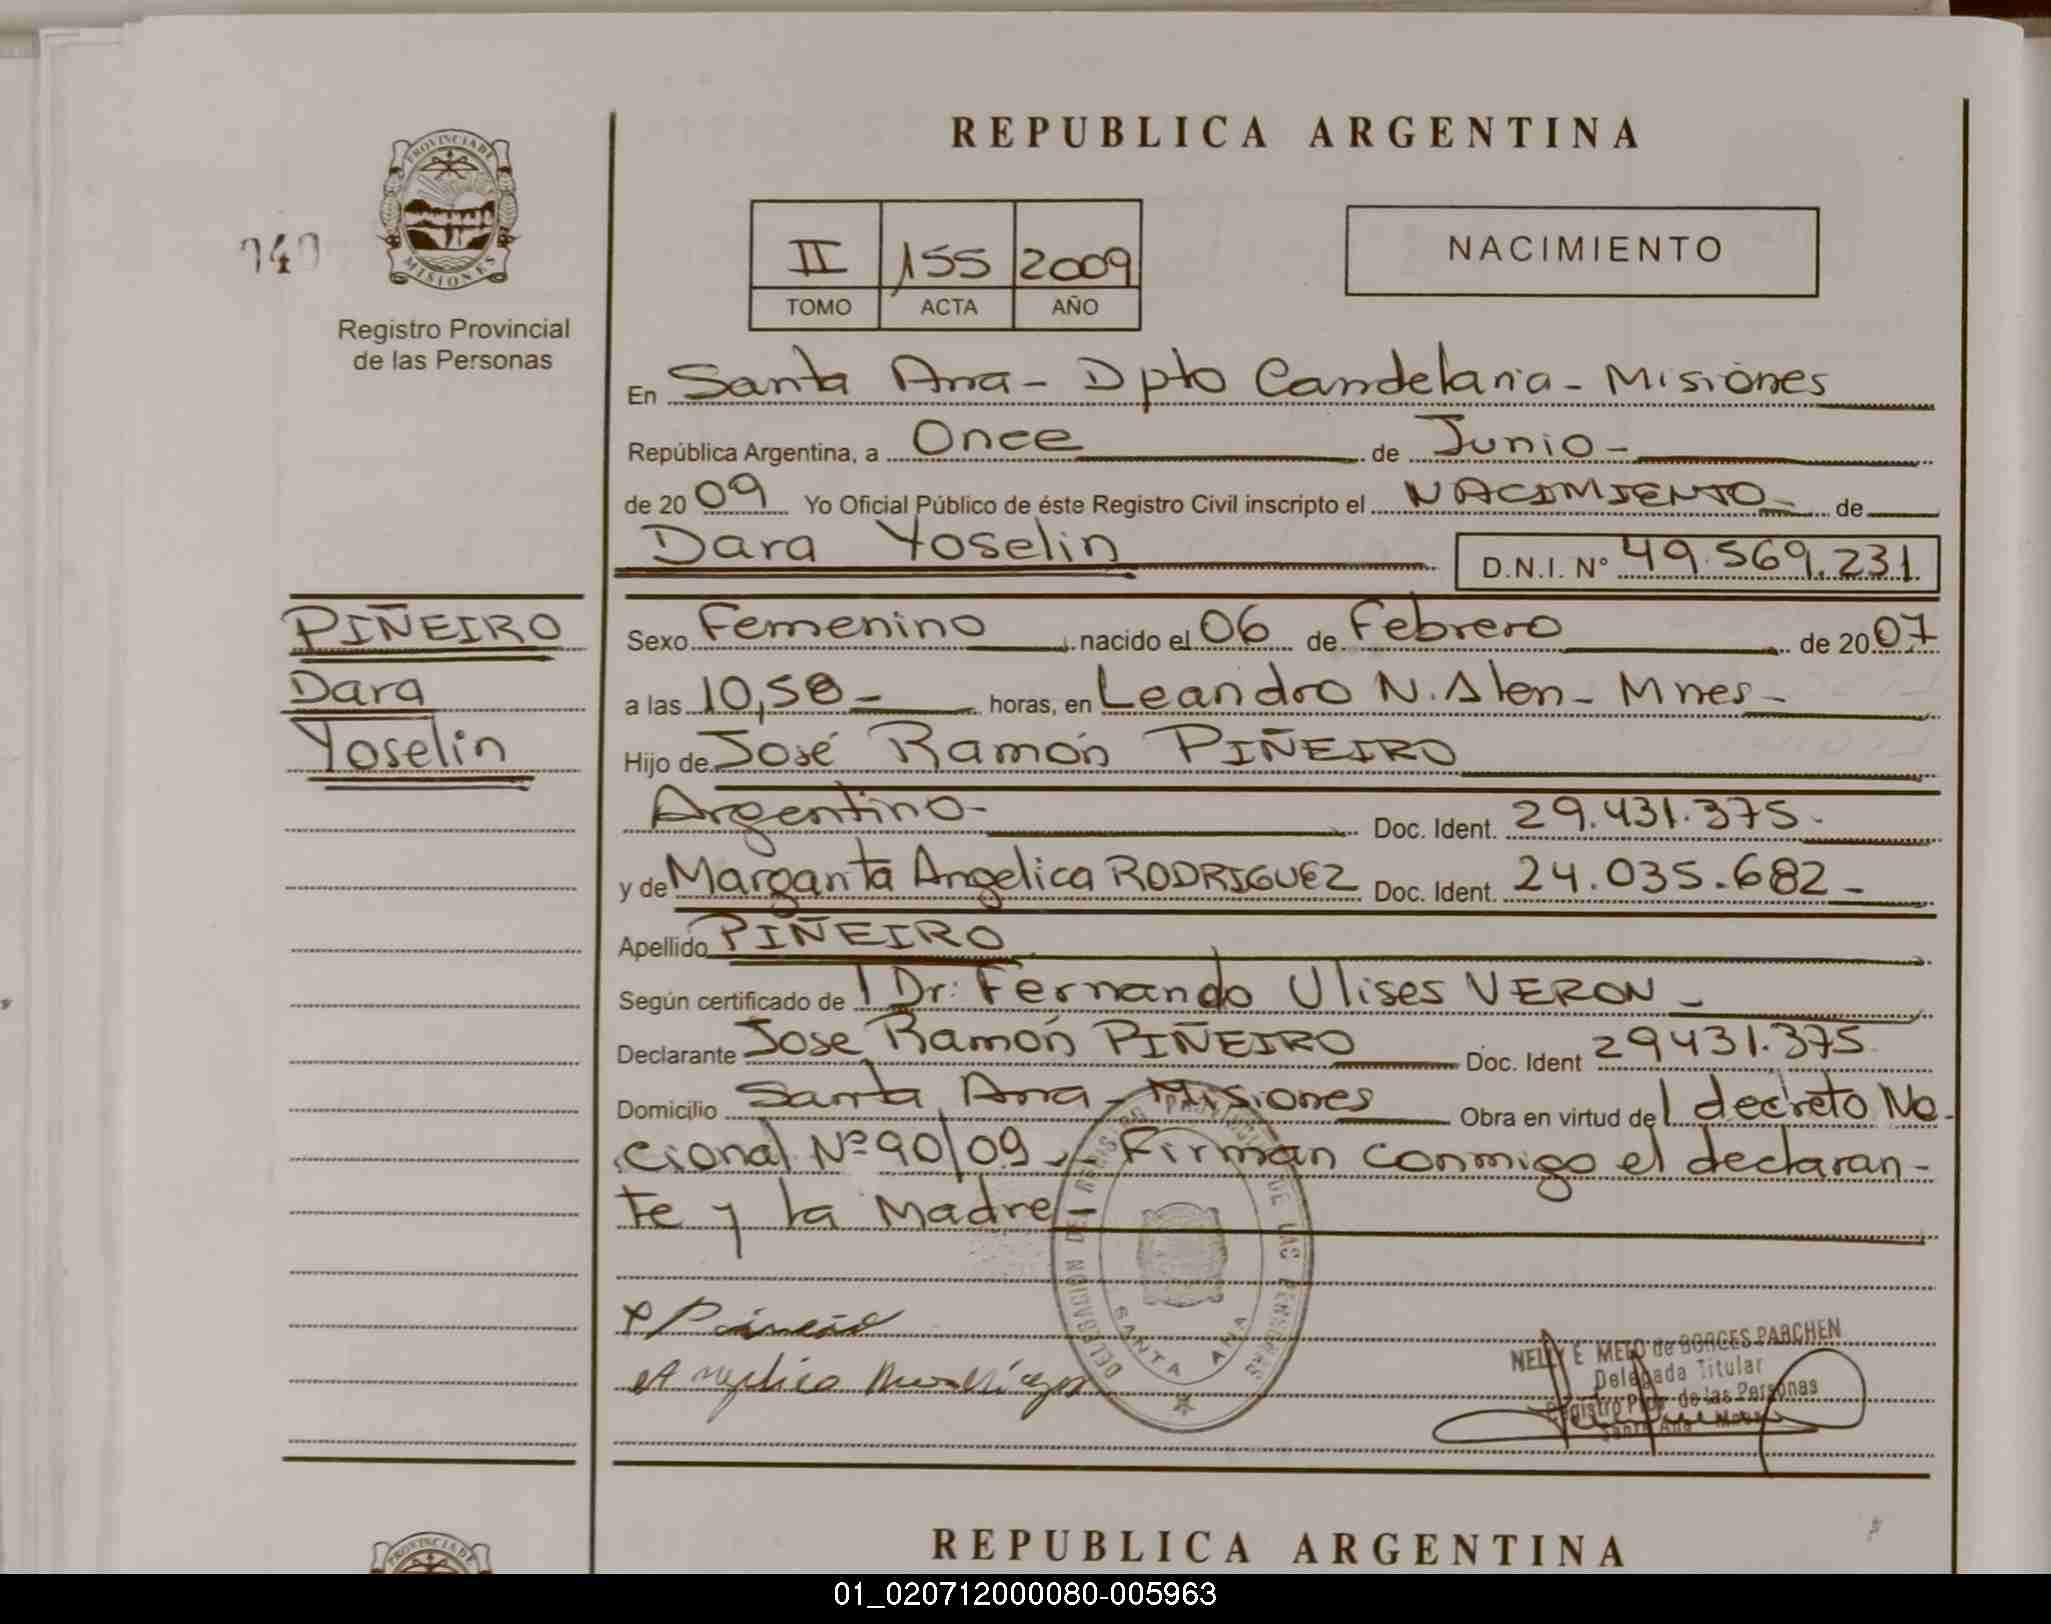 REPUBLICA ARGENTINA
PROVINCIA DE MISIONES
Registro Provincial
de las Personas
II 155 2009
TOMO ACTA AÑO
NACIMIENTO
En Santa Ana - Dpto Candelaria - Misiones
República Argentina, a Once de Junio -
de 2009 Yo Oficial Público de éste Registro Civil inscripto el NACIMIENTO - de
Dara Yoselin D.N.I. Nº 49.569.231
PIÑEIRO
Dara
Yoselin
Sexo Femenino nacido el 06 de Febrero de 2007
a las 10,50 - horas, en Leandro N. Alen - Mnes -
Hijo de José Ramón PIÑEIRO
Argentino - Doc. Ident. 29.431.375 -
y de Margarita Angelica RODRIGUEZ Doc. Ident. 24.035.682 -
Apellido PIÑEIRO
Según certificado de l Dr: Fernando Ulises VERON -
Declarante Jose Ramón PIÑEIRO Doc. Ident 29431.375
Domicilio Santa Ana - Misiones Obra en virtud de l decreto Na-
cional Nº 90/09 - Firman conmigo el declaran-
te y la Madre -
DELEGACION DEL REGISTRO PROVINCIAL DE LAS PERSONAS
SANTA ANA
Piñeiro
Angelica Rodriguez
NELLY E. MELO de BORGES PARCHEN
Delegada Titular
Registro Prov. de las Personas
Santa Ana
REPUBLICA ARGENTINA
PROVINCIA DE
01_020712000080-005963